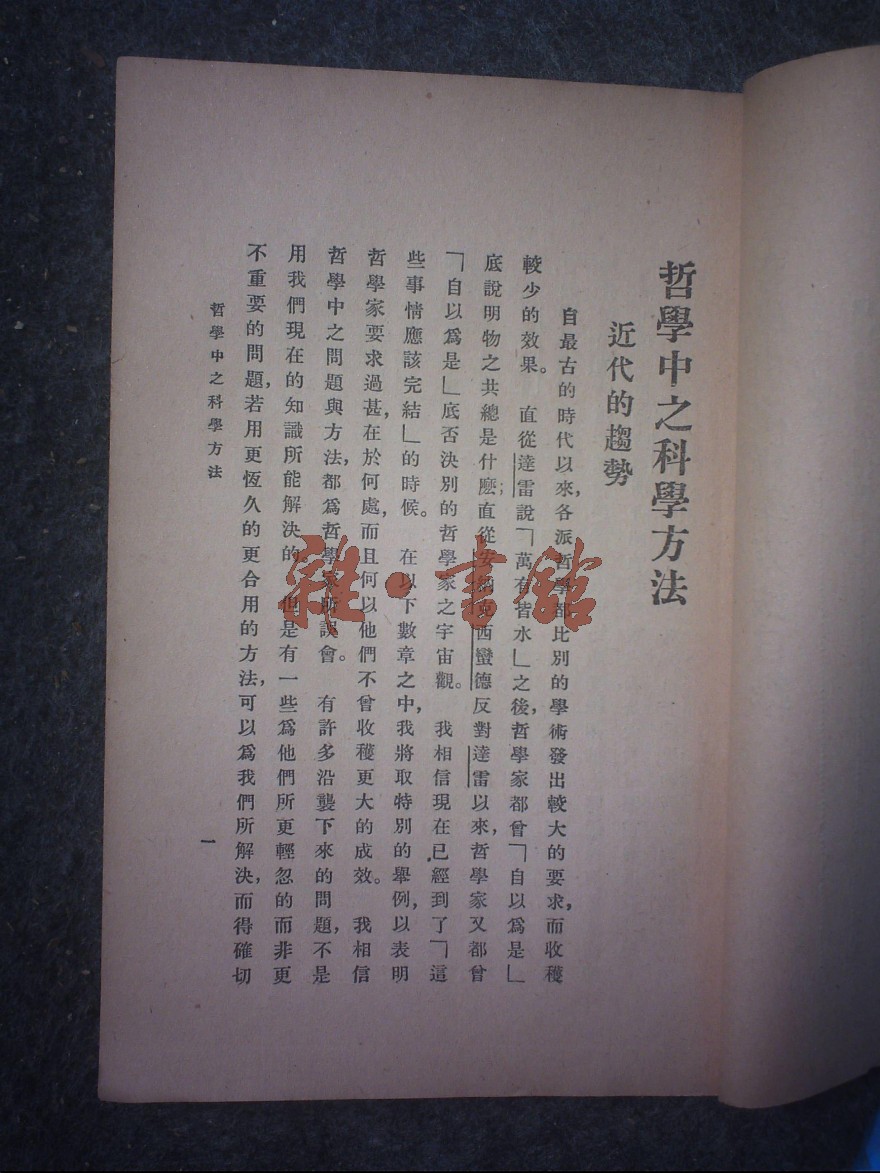 哲學中之科學方法
近代的趨勢
自最古的時代以來，各派哲學都比別的學術發出較大的要求，而收穫
較少的效果。直從達雷說「萬有皆水」之後，哲學家都曾「自以爲是」
底說明物之共總是什麽；直從安納西蠻德反對達雷以來，哲學家又都曾
「自以爲是」底否決別的哲學家之宇宙觀。我相信現在已經到了「這
些事情應該完結」的時候。在以下數章之中，我將取特別的舉例，以表明
哲學家要求過甚，在於何處，而且何以他們不曾收穫更大的成效。我相信
哲學中之問題與方法，都爲哲學家所誤會。有許多沿襲下來的問題，不是
用我們現在的知識所能解決的。但是有一些爲他們所更輕忽的而非更
不重要的問題，若用更恆久的更合用的方法，可以爲我們所解決，而得確切
哲學中之科學方法
一
雜·書館